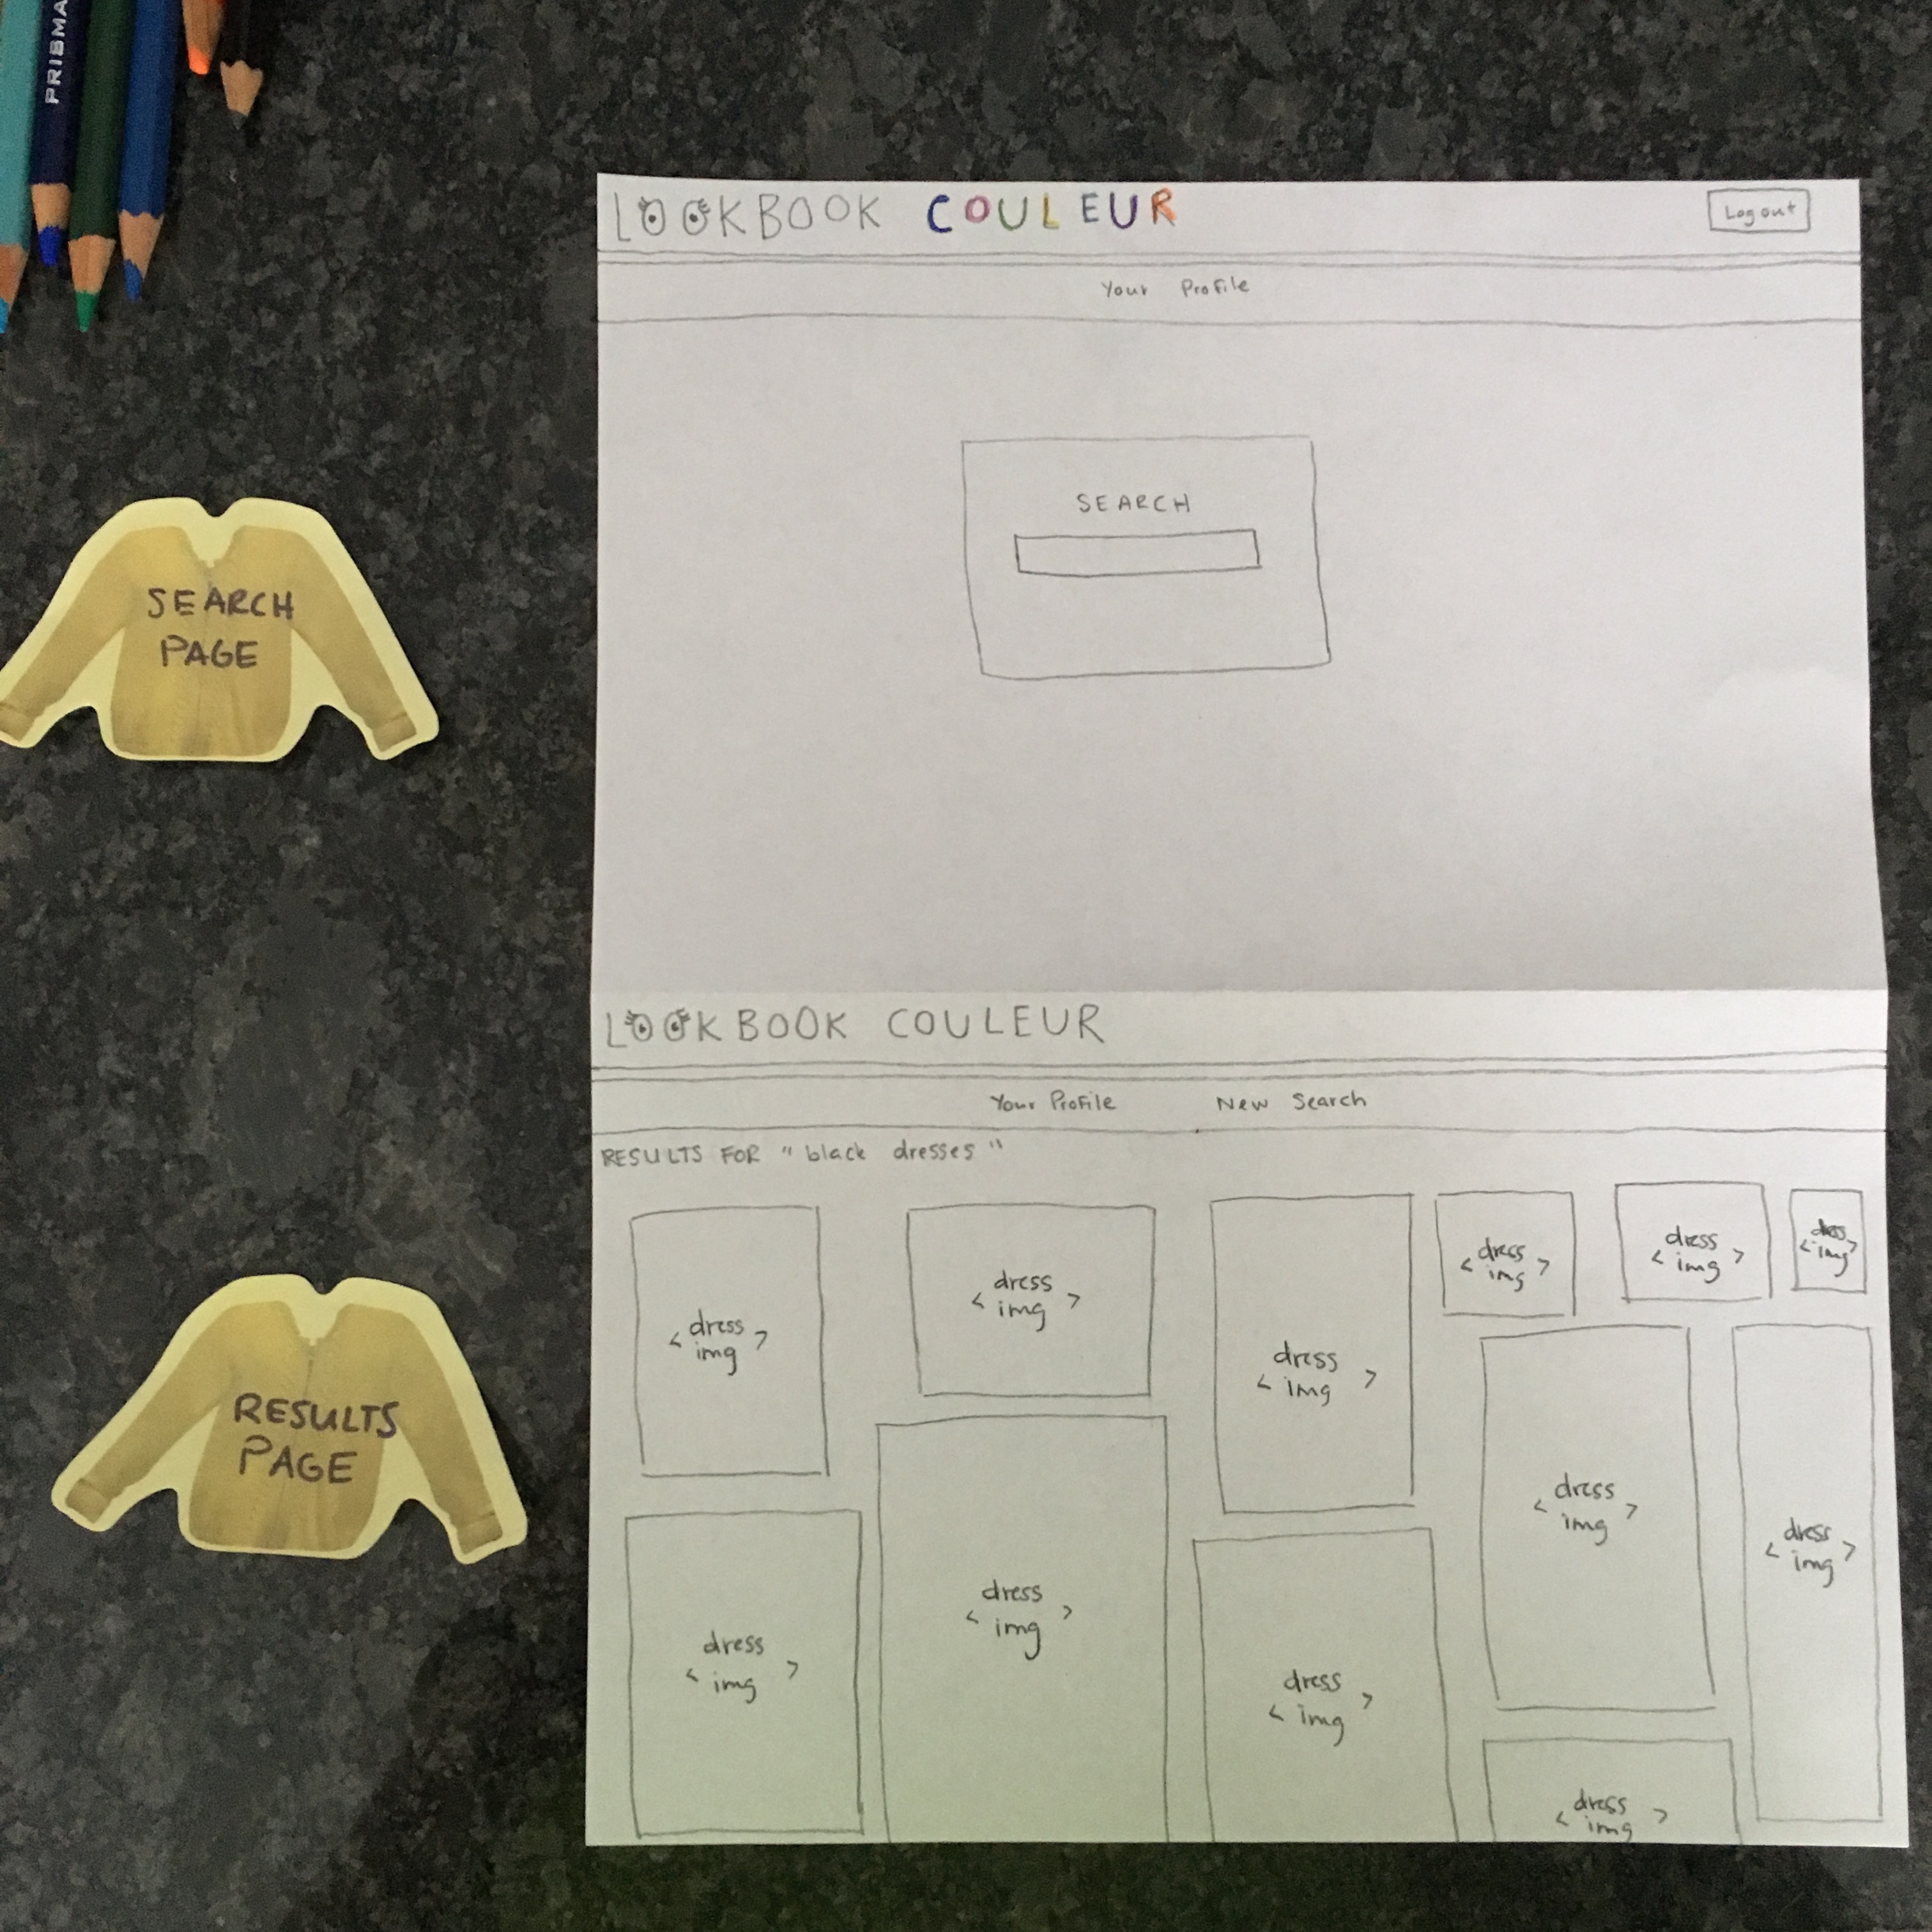 PRISMA
LOOKBOOK COULEUR
Log out
Your Profile
SEARCH
SEARCH
PAGE
LOOKBOOK COULEUR
Your Profile New Search
RESULTS FOR "black dresses"
RESULTS
PAGE
< dress
img >
< dress
img >
< dress
img >
< dress
img >
< dress
img >
< dress
img >
< dress
img >
< dress
img >
< dress
img >
< dress
img >
< dress
img >
< dress
img >